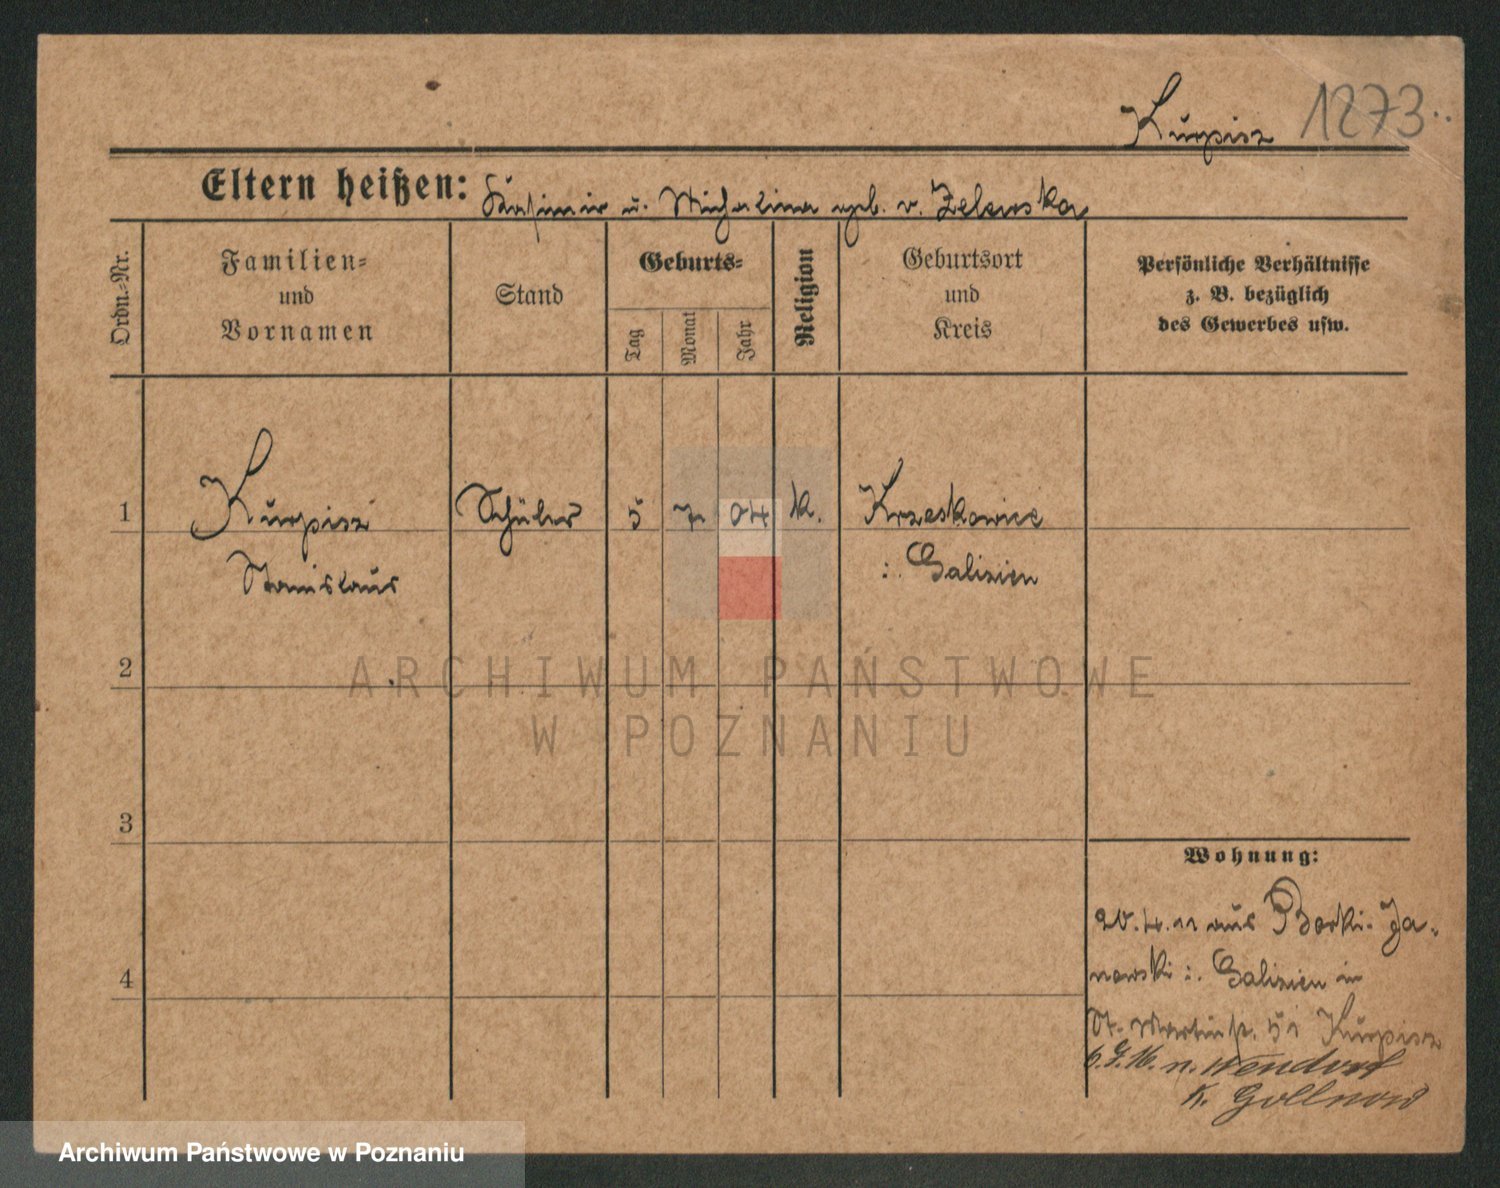 Kurpisz 1273..
Eltern heißen: Kasimir u. Michalina geb. v. Zelewska
Ordn.-Nr.
Familien-
und
Vornamen
Stand
Geburts-
Tag
Monat
Jahr
Religion
Geburtsort
und
Kreis
Persönliche Verhältnisse
z. B. bezüglich
des Gewerbes usw.
1 Kurpisz Schüler 5 7 04 k. Krzeskowice
Stanislaus i. Galizien
2
ARCHIWUM PAŃSTWOWE
W POZNANIU
3
Wohnung:
20.4.11 aus Borki-Ja-
nowski i. Galizien in
4
St. Martinstr. 51 Kurpisz
6.9.16. n. Wendorf
K. Gollnow
Archiwum Państwowe w Poznaniu